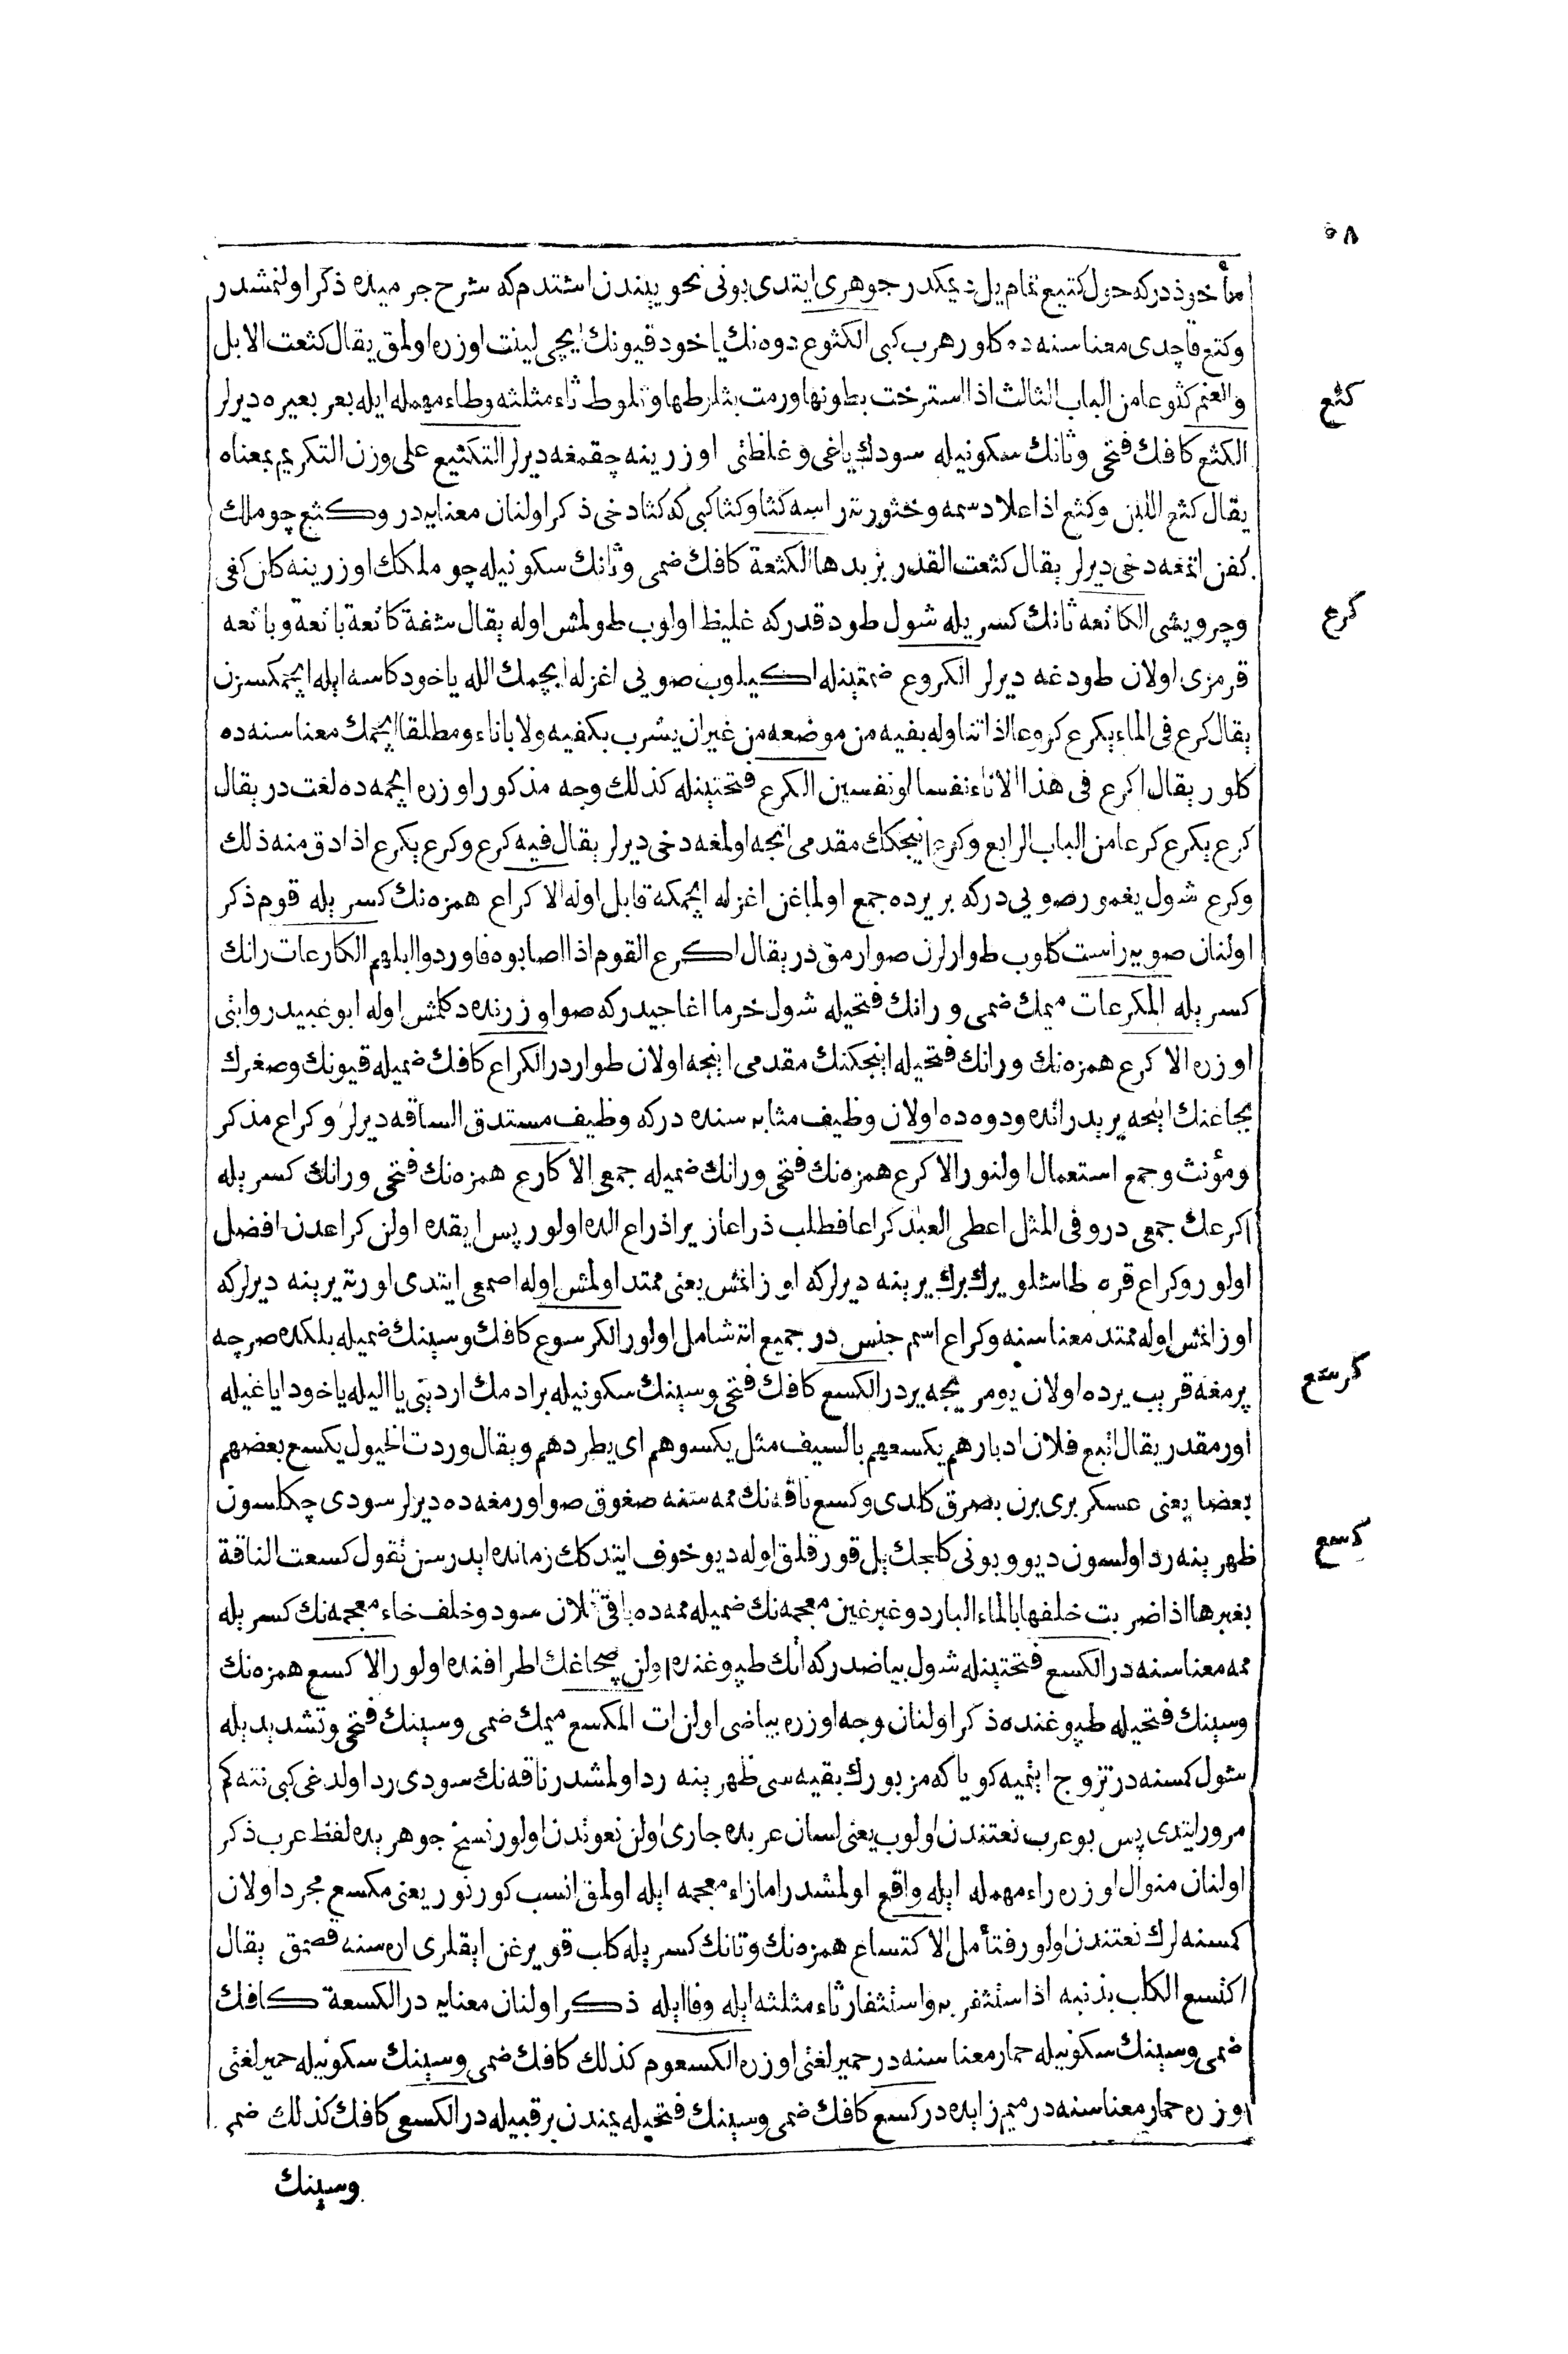 ٥٨
مأخوذدركه حول كتيع تمام ييل ديمكدر جوهرى ايتدى بونى نحويندن اشتدم كه شرح جرميده ذكر اولنمشدر
وكتع قاچدى معناسنه ده كلور هرب كبى الكثوع دوه نك ياخود قيونك ايچى لينت اوزره اولمق يقال كثعت الابل
كثع
والغنم كثوعا من الباب الثالث اذا استرخت بطونها ورمت بثلطها وثلوط ثاء مثلثه وطاء مهمله ايله بعر بعيره ديرلر
الكثع كافك فتحى وثانك سكونيله سودك ياغى وغلظتى اوزرينه چقمغه ديرلر التكثيع على وزن التكريم بمعناه
يقال كثع اللبن وكثع اذا علا دسمه وخثورته راسه كثا وكثا كبى كه كثا دخى ذكر اولنان معنايه در وكثع چوملك
كفن اتمغه دخى ديرلر يقال كثعت القدر بزبدها الكثعة كافك ضمى وثانك سكونيله چوملكك اوزرينه كلن كفى
كرع
وچرويشى الكاثعه ثانك كسريله شول طودقدركه غليظ اولوب طولمش اوله يقال شفة كاثعة باثعة وباثعه
قرمزى اولان طودغه ديرلر الكروع ضمتينله اكيلوب صويى اغزله ايچمك الله ياخود كاسه ايله ايچمكسزن
يقال كرع فى الماء يكرع كروعا اذا تناوله بفيه من موضعه من غير ان يشرب بكفيه ولا باناء ومطلقا ايچمك معناسنه ده
كلور يقال اكرع فى هذا الاناء نفسا او نفسين الكرع فتحتينله كذلك وجه مذكور اوزره ايچمه ده لغت در يقال
كرع يكرع كرعا من الباب الرابع وكرع اينجكك مقدمى انجه اولمغه دخى ديرلر يقال فيه كرع وكرع يكرع اذا دق منه ذلك
وكرع شول يغمور صويى دركه بر يرده جمع اولماغن اغزله ايچمكه قابل اوله الاكراع همزه نك كسريله قوم ذكر
اولنان صويه راست كلوب طوارلرن صوارمق در يقال اكرع القوم اذا اصابوه فاوردوا ابلهم الكارعات رانك
كسريله المكرعات ميمك ضمى ورانك فتحيله شول خرما اغاجيدركه صو اوزرنده دكلمش اوله ابو عبيد روايتى
اوزره الاكرع همزه نك ورانك فتحيله اينجكنك مقدمى اينجه اولان طواردر الكراع كافك ضميله قيونك وصغرك
بجاغنك اينجه يريدر انده ودوه ده اولان وظيف مثابه سنده دركه وظيف مستدق الساقه ديرلر وكراع مذكر
ومؤنث وجمع استعمال اولنور الاكرع همزه نك فتحى ورانك ضميله جمعى الاكارع همزه نك فتحى ورانك كسريله
اكرعك جمعى در وفى المثل اعطى العبد كراعا فطلب ذراعا زيرا ذراع الده اولور پس ايقده اولن كراعدن افضل
اولور وكراع قره طاشلو يرك برك يرينه ديرلركه اوزانمش يعنى ممتد اولمش اوله اصمعى ايتدى اورته يرينه ديرلركه
اوزانمش اوله ممتد معناسنه وكراع اسم جنس در جميع اته شامل اولور الكرسوع كافك وسينك ضميله بلكده صرچه
كرسع
پرمغه قريب يرده اولان يومريجه يردر الكسع كافك فتحى وسينك سكونيله برادمك اردينى يا اليله ياخود اياغيله
اورمقدر يقال اتبع فلان ادبارهم يكسعهم بالسيف مثل يكسوهم اى يطردهم ويقال وردت الخيول يكسع بعضهم
بعضا يعنى عسكر برى برن بصرق كلدى وكسع ناقه نك ممه سنه صغوق صو اورمغه ده ديرلر سودى چكلسون
كسع
ظهرينه رد اولسون ديو وبونى كلجك ييل قورقلق اوله ديو خوف ايتدكك زمانده ايدرسن تقول كسعت الناقة
بغبرها اذا ضربت خلفها بالماء البارد وغبر غين معجمه نك ضميله ممه ده باقى قلان سود وخلف خاء معجمه نك كسريله
ممه معناسنه در الكسع فتحتينله شول بياضدركه اتك طپوغنده اولن صچاغك اطرافنده اولور الاكسع همزه نك
وسينك فتحيله طپوغنده ذكر اولنان وجه اوزره بياضى اولن ات المكسع ميمك ضمى وسينك فتحى وتشديديله
شول كمسنه در تزوج ايتميه كويا كه مزبورك بقيه سى ظهرينه رد اولمشدر ناقه نك سودى رد اولدغى كبى نته كم
مرور ايتدى پس بو عرب نعتندن اولوب يعنى لسان عربده جارى اولن نعوتدن اولور نسخ جوهريده لفظ عرب ذكر
اولنان منوال اوزره راء مهمله ايله واقع اولمشدر اما زاء معجمه ايله اولمق انسب كورنور يعنى مكسع مجرد اولان
كمسنه لرك نعتندن اولور فتأمل الاكتساع همزه نك وتانك كسريله كلب قويرغن ايقلرى اره سنه قصمق يقال
اكتسع الكلب بذنبه اذا استثفر به واستثفار ثاء مثلثه ايله وفا ايله ذكر اولنان معنايه در الكسعة كافك
ضمى وسينك سكونيله حمار معناسنه در حمير لغتى اوزره الكسعوم كذلك كافك ضمى وسينك سكونيله حمير لغتى
اوزره حمار معناسنه در ميم زايده در كسع كافك ضمى وسينك فتحيله يمندن بر قبيله در الكسعى كافك كذلك ضم
وسينك